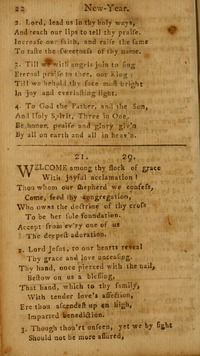 22 New-Year.
2. Lord, lead us in thy holy ways,
And teach our lips to tell thy praise.
Increase our faith, and raise the same
To taste the sweetness of thy name.
3. Till we with angels join to sing
Eternal praise to thee, our King;
Till we behold thy face most bright
In joy and everlasting light.
4. To God the Father, and the Son,
And Holy Spirit, Three in One,
Be honor, praise and glory giv'n
By all on earth and all in heav'n.
21. 29.
WELCOME among thy flock of grace
With joyful acclamation!
Thou whom our shepherd we confess,
Come, feed thy congregation,
Who own the doctrine of thy cross
To be her sole foundation.
Accept from ev'ry one of us
The deepest adoration.
2. Lord Jesus, to our hearts reveal
Thy grace and love unceasing.
Thy hand, once pierced with the nail,
Bestow on us a blessing,
That hand, which to thy family,
With tender love's affection,
Ere thou ascendedst up on high,
Imparted benediction.
3. Though thou'rt unseen, yet we by sight
Should not be more assured,